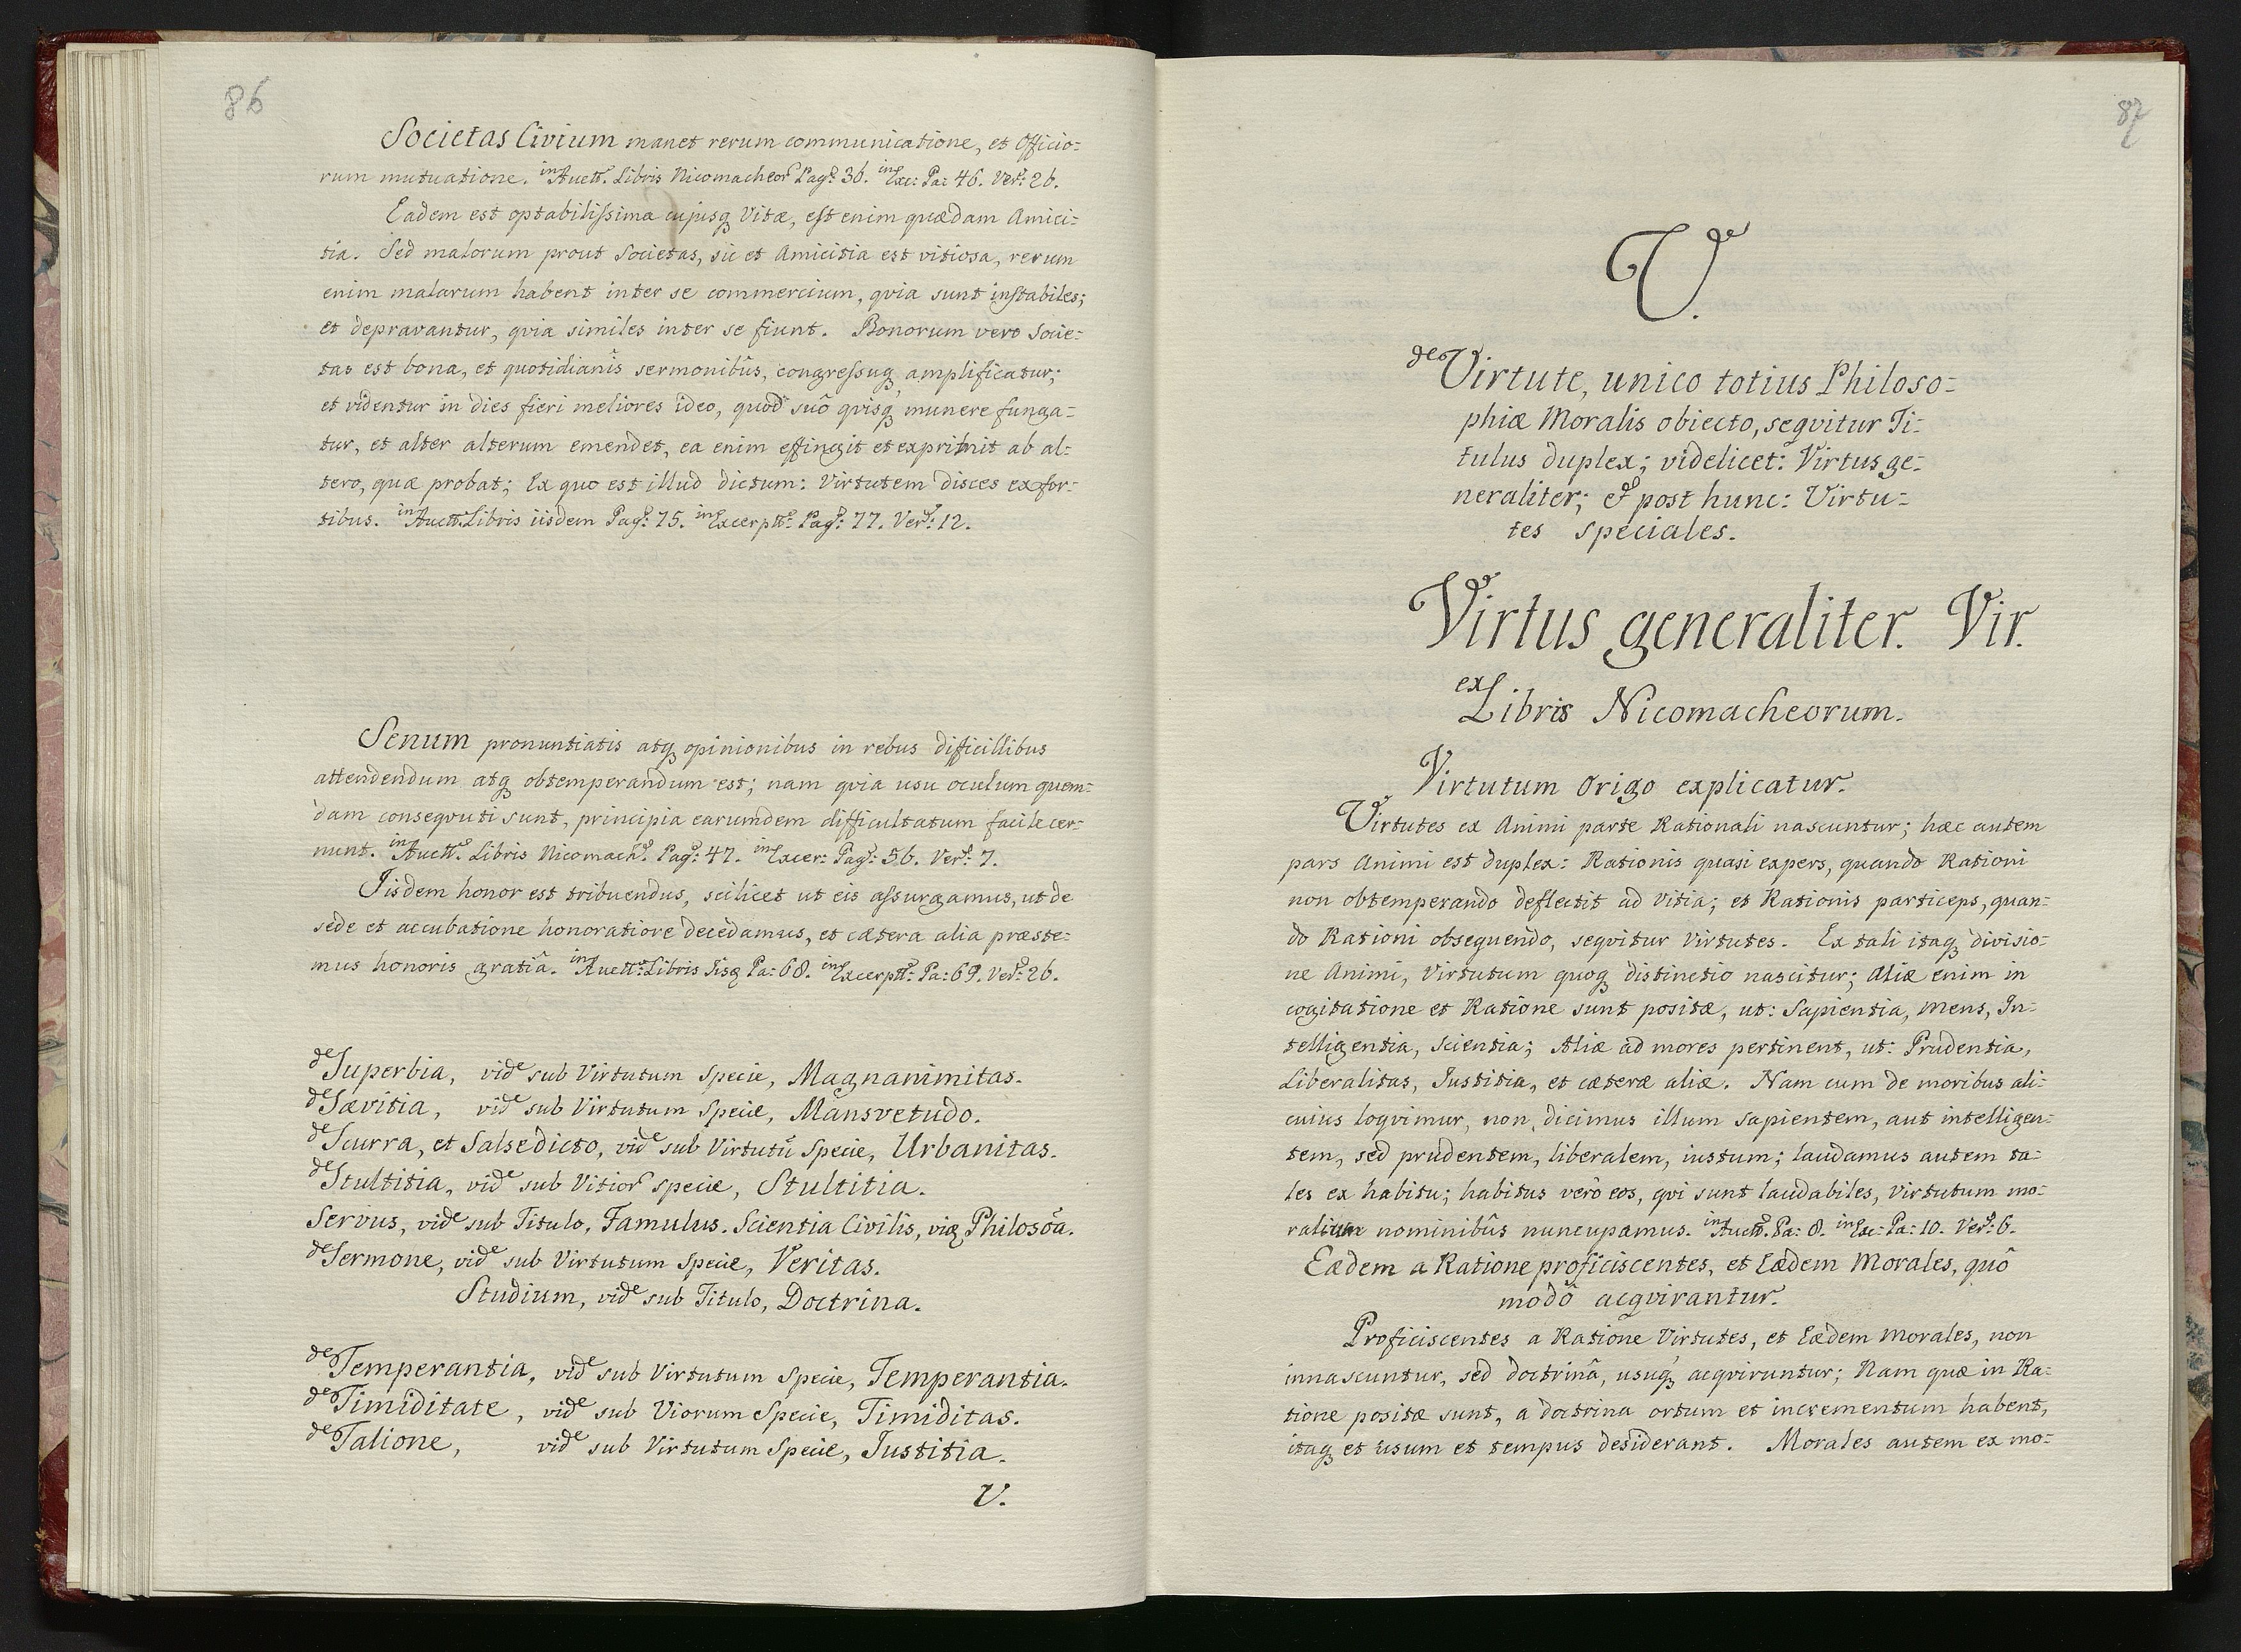 86
Societas Civium manet rerum communicatione, et Officio=
rum mutuatione. in Auctt. Libris Nicomacheor Pag: 36. in Exc: Pa: 46. Ver: 26.
Eadem est optabilissima cujusq Vitæ, est enim quædam Amici=
tia. Sed malorum prout Societas, sic et Amicitia est vitiosa, rerum
enim malarum habent inter se commercium, qvia sunt instabiles;
et depravantur, qvia similes inter se fiunt. Bonorum vero Socie=
tas est bona, et quotidianîs sermonibûs, congressuq amplificatur;
et videntur in dies fieri meliores ideo, quod suô qvisq munere funga=
tur, et alter alterum emendet, ea enim effingit et exprimit ab al=
tero, quæ probat; Ex quo est illud dictum: Virtutem disces ex for=
tibus. in Auctt. Libris iisdem Pag: 75. in Excerptt: Pag: 77. Ver: 12.
Senum pronuntiatis atq opinionibus in rebus difficillibus
attendendum atq obtemperandum est; nam qvia usu oculum quem=
dam conseqvuti sunt, principia earumdem difficultatum facile cer=
nunt. in Auctt. Libris Nicomach. Pag: 47. in Excer: Pag: 56. Ver: 7.
Iisdem honor est tribuendus, scilicet ut eis assurgamus, ut de
sede et accubatione honoratiore decedamus, et cætera alia præste=
mus honoris gratiâ. in Auctt: Libris Iisq Pa: 68. in Excerptt: Pa: 69. Ver: 26.
de Superbia, vide sub Virtutum Specie, Magnanimitas.
de Sævitia, vide sub Virtutum Specie, Mansvetudo.
de Scurra, et Salsedicto, vide sub Virtutū Specie, Urbanitas.
de Stultitia, vide sub Vitior specie, Stultitia.
Servus, vide sub Titulo, Famulus. Scientia Civilis, viq Philosoa.
de Sermone, vide sub Virtutum Specie, Veritas.
Studium, vide sub Titulo, Doctrina.
de Temperantia, vide sub Virtutum Specie, Temperantia.
de Timiditate, vide sub Viorum Specie, Timiditas.
de Talione, vide sub Virtutum Specie, Iustitia.
V.
87
V.
de Virtute, unico totius Philoso=
phiæ Moralis obiecto, seqvitur Ti=
tulus duplex; videlicet: Virtus ge=
neraliter; & post hunc: Virtu=
tes speciales.
Virtus generaliter. Vir.
ex Libris Nicomacheorum.
Virtutum Origo explicatur.
Virtutes ex Animi parte Rationali nascuntur; hæc autem
pars Animi est duplex: Rationis quasi expers, quando Rationi
non obtemperando deflectit ad vitia; et Rationis particeps, quan=
do Rationi obsequendo, seqvitur Virtutes. Ex tali itaq divisio=
ne Animi, Virtutum quoq distinctio nascitur; Aliæ enim in
cogitatione et Ratione sunt positæ, ut: Sapientia, Mens, In=
telligentia, Scientia; Aliæ ad mores pertinent, ut: Prudentia,
Liberalitas, Iustitia, et cæteræ aliæ. Nam cum de moribus ali=
cuius loqvimur, non dicimus illum sapientem, aut intelligen=
tem, sed prudentem, liberalem, iustum; laudamus autem ta=
les ex habitu; habitus verò eos, qvi sunt laudabiles, Virtutum mo=
ralium nominibûs nuncupamus. in Auctt. Pa: 8. in Exc: Pa: 10. Ver: 6.
Eædem a Ratione proficiscentes, et Eædem Morales, quô
modô acqvirantur.
Proficiscentes a Ratione Virtutes, et Eædem morales, non
innascuntur, sed doctrinâ, usuq acqviruntur; Nam quæ in Ra=
tione positæ sunt, a doctrina ortum et incrementum habent,
itaq et usum et tempus desiderant. Morales autem ex mo=